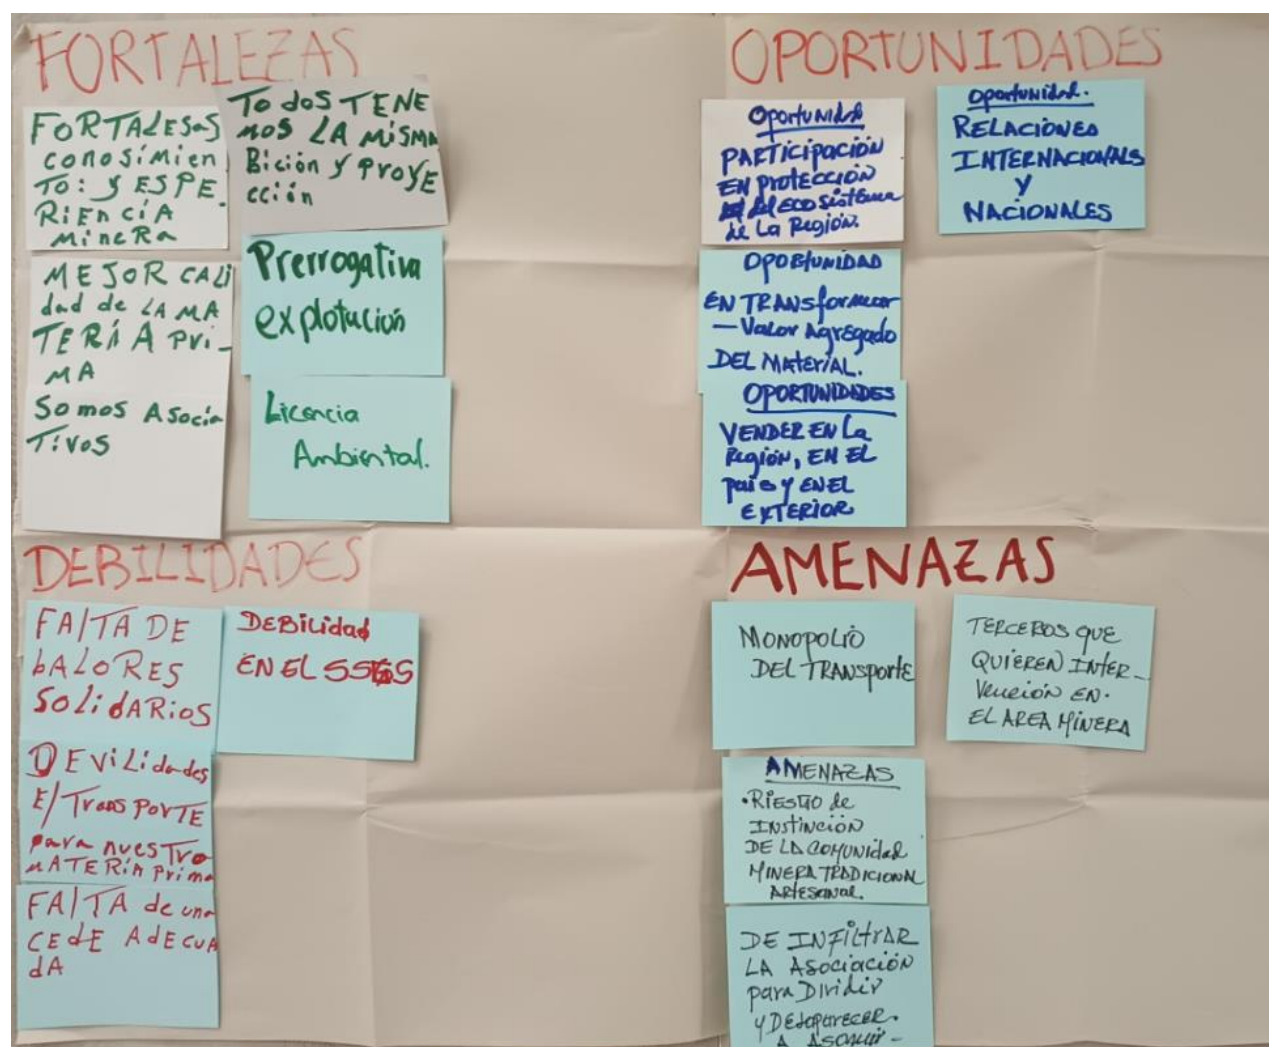 FORTALEZAS
FORTALESAS
conosimien
To: y ESPE.
RiENCiA
MineRA
TodOS TENE
mos LA MiSMA
Bición y ProyE
cción
MEJOR CALi
dad de LA MA
TERÍA Pri-
MA
Somos Asocia
Tivos
Prerrogativa
explotación
Licencia
Ambiental.
OPORTUNIDADES
Oportunidad
PARTICIPACIÓN
EN Protección
del ecosistema
de La Región.
Oportunidad.
RELACIONES
INTERNACIONALS
Y
NACIONALES
OPORTUNIDAD
EN TRANSformar
- Valor Agregado
DEL MATERIAL.
OPORTUNIDADES
VENDER EN La
Región, EN EL
país y EN EL
EXTERIOR
DEBILIDADES
FALTA DE
bALORES
SOLidARiOS
DEBilidad
EN EL
DEViLidades
E/TransPorTE
para nuesTra
MATERIA Prima
FALTA de una
CEdE AdECUA
dA
AMENAZAS
MONOPOLIO
DEL TRANSPORTE
TERCEROS QUE
QUIEREN INTER-
Vención EN.
EL AREA MINERA
AMENAZAS
•RIESGO de
INSTINCIÓN
DE LA COMUNIDAD
MINERA TRADICIONAL
ARTESANAL.
DE INFILTRAR
LA ASOCIACIÓN
para Dividir
y DESaparecer.
A